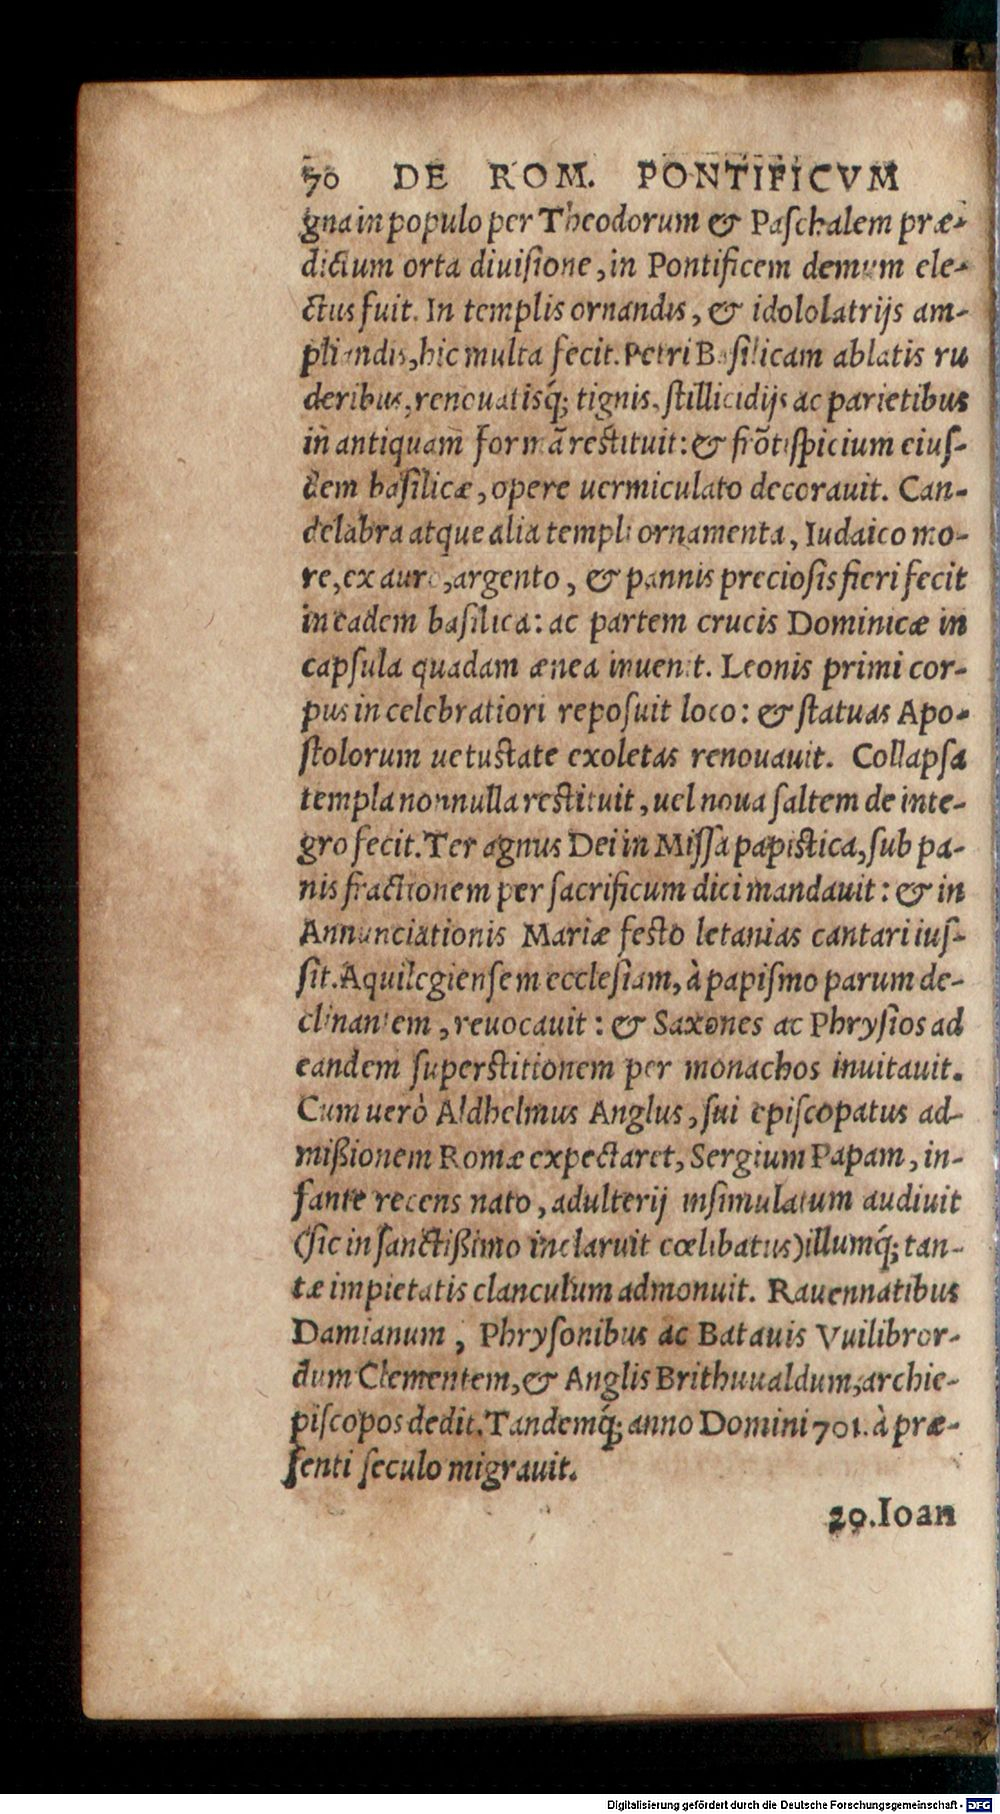 70 DE ROM. PONTIFICVM
gna in populo per Theodorum & Paſchalem præ-
dictum orta diuiſione, in Pontificem demum ele-
ctus fuit. In templis ornandis, & idololatrijs am-
pliandis, hic multa fecit. Petri Baſilicam ablatis ru
deribus, renouatisq́; tignis, ſtillicidijs ac parietibus
in antiquam formã reſtituit: & frõtiſpicium eiuſ-
dem baſilicæ, opere uermiculato decorauit. Can-
delabra atque alia templi ornamenta, Iudaico mo-
re, ex auro, argento, & pannis precioſis fieri fecit
in eadem baſilica: ac partem crucis Dominicæ in
capſula quadam ænea inuenit. Leonis primi cor-
pus in celebratiori repoſuit loco: & ſtatuas Apo-
ſtolorum uetuſtate exoletas renouauit. Collapſa
templa nonnulla reſtituit, uel noua ſaltem de inte-
gro fecit. Ter agnus Dei in Miſſa papiſtica, ſub pa-
nis fractionem per ſacrificum dici mandauit: & in
Annunciationis Mariæ feſto letanias cantari iuſ-
ſit. Aquilegienſem eccleſiam, à papiſmo parum de-
clinantem, reuocauit: & Saxones ac Phryſios ad
eandem ſuperſtitionem per monachos inuitauit.
Cum uerò Aldhelmus Anglus, ſui epiſcopatus ad-
mißionem Romæ expectaret, Sergium Papam, in-
fante recens nato, adulterij inſimulatum audiuit
(ſic in ſanctißimo inclaruit cœlibatus) illumq́; tan-
tæ impietatis clanculum admonuit. Rauennatibus
Damianum, Phryſonibus ac Batauis Vuilibror-
dum Clementem, & Anglis Brithuualdum, archie-
piſcopos dedit. Tandemq́; anno Domini 701. à præ-
ſenti ſeculo migrauit.
20. Ioan
Digitalisierung gefördert durch die Deutsche Forschungsgemeinschaft - DFG